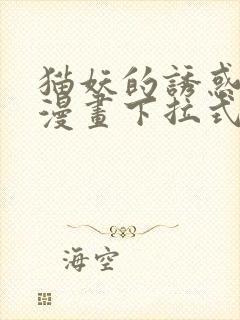 猫妖的誘惑
漫畫下拉式
海空